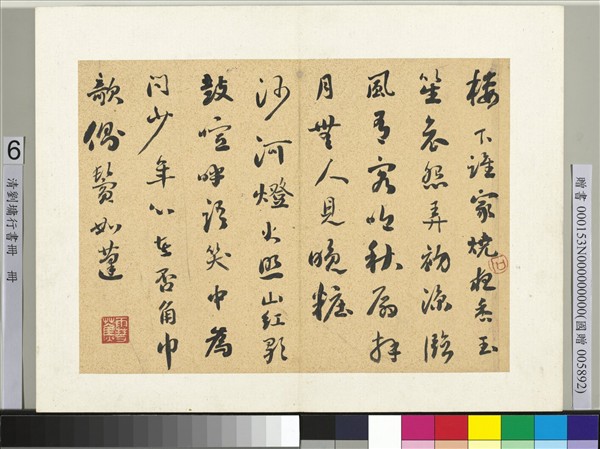 樓下誰家燒夜香玉
笙哀怨弄初涼臨
風有客吟秋扇拜
月無人見晚糚
沙河燈火照山紅歌
鼓喧呼語笑中為
問少年心在否角巾
欹側鬢如蓬
6
清劉墉行書冊 冊
贈書 000153N000000000(國贈 005892)